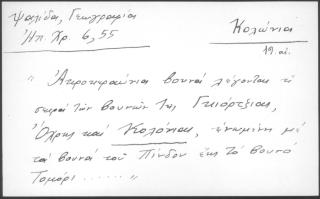 Ψαλίδα, Γεωγραφία
Ἠπ. Χρ. 6, 55
Κολώνια
19 αἰ.
" Ἀκροκεραύνια βουνά λέγονται ἡ
σειρά τῶν βουνῶν τῆς Γκιόρτζιας,
Ὄχρης καί Κολόνιας, ἑνωμένη μέ
τά βουνά τοῦ Πίνδου ἕως τό βουνό
Τομόρι ...... "